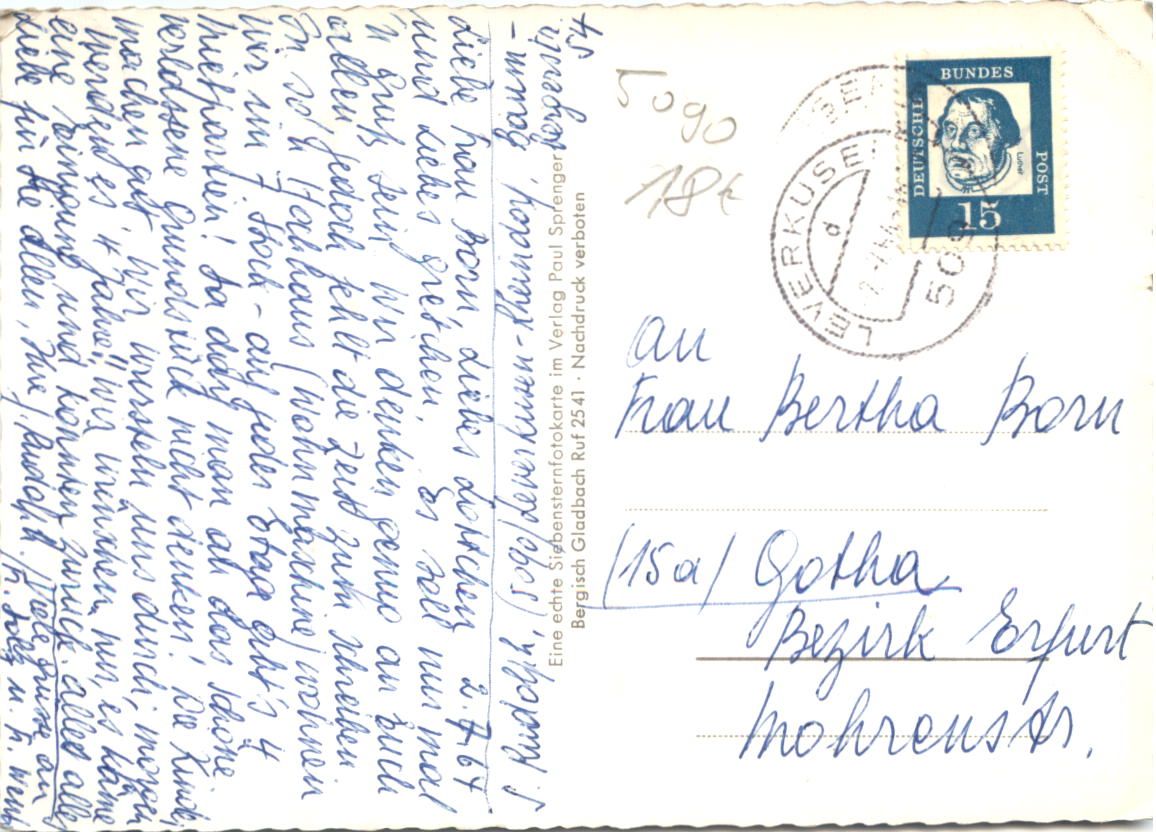 J. Rudolph, (509) Leverkusen-Rheindorf, Masurenstr.
Liebe Frau Born, liebes Dorchen 2.7.64
und liebes Gretchen. Es soll nur mal
'n Gruß sein. Wir denken genug an Euch
allen, jedoch fehlt die Zeit zum schreiben.
In so'n Hochhaus (Wohnmaschine) wohnen
wir nun 7 Stock - auf jeder Etage gibt's 4
Mietparteien! Da darf man an das schöne
verlassene Grundstück nicht denken! Die Kinder
machen gut. Wir wursteln uns durch, morgen
werden es 4 Jahre, wir wünschen nur, es käme
eine Einigung und könnten zurück. alles alles
Liebe für Sie allen, Ihre Rudolph. Viele Grüße an
Fr.
5090
18€
DEUTSCHE
BUNDES
POST
Luther
15
LEVERKUSEN
d
509
Eine echte Siebensternfotokarte im Verlag Paul Sprenger
Bergisch Gladbach Ruf 2541 · Nachdruck verboten
An
Frau Bertha Born
(15a) Gotha
Bezirk Erfurt
Mohrenstr.